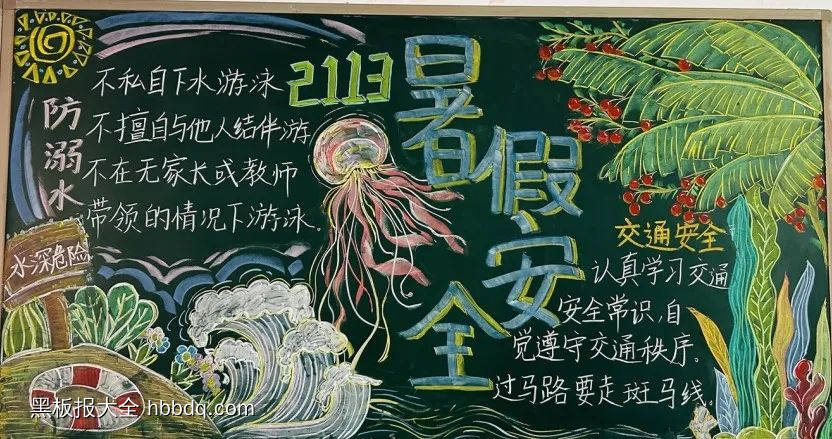 防溺水
不私自下水游泳
不擅自与他人结伴游
不在无家长或教师
带领的情况下游泳。
水深危险
2113
暑假安全
交通安全
认真学习交通
安全常识,自
觉遵守交通秩序。
过马路要走斑马线。
黑板报大全 hbbdq.com